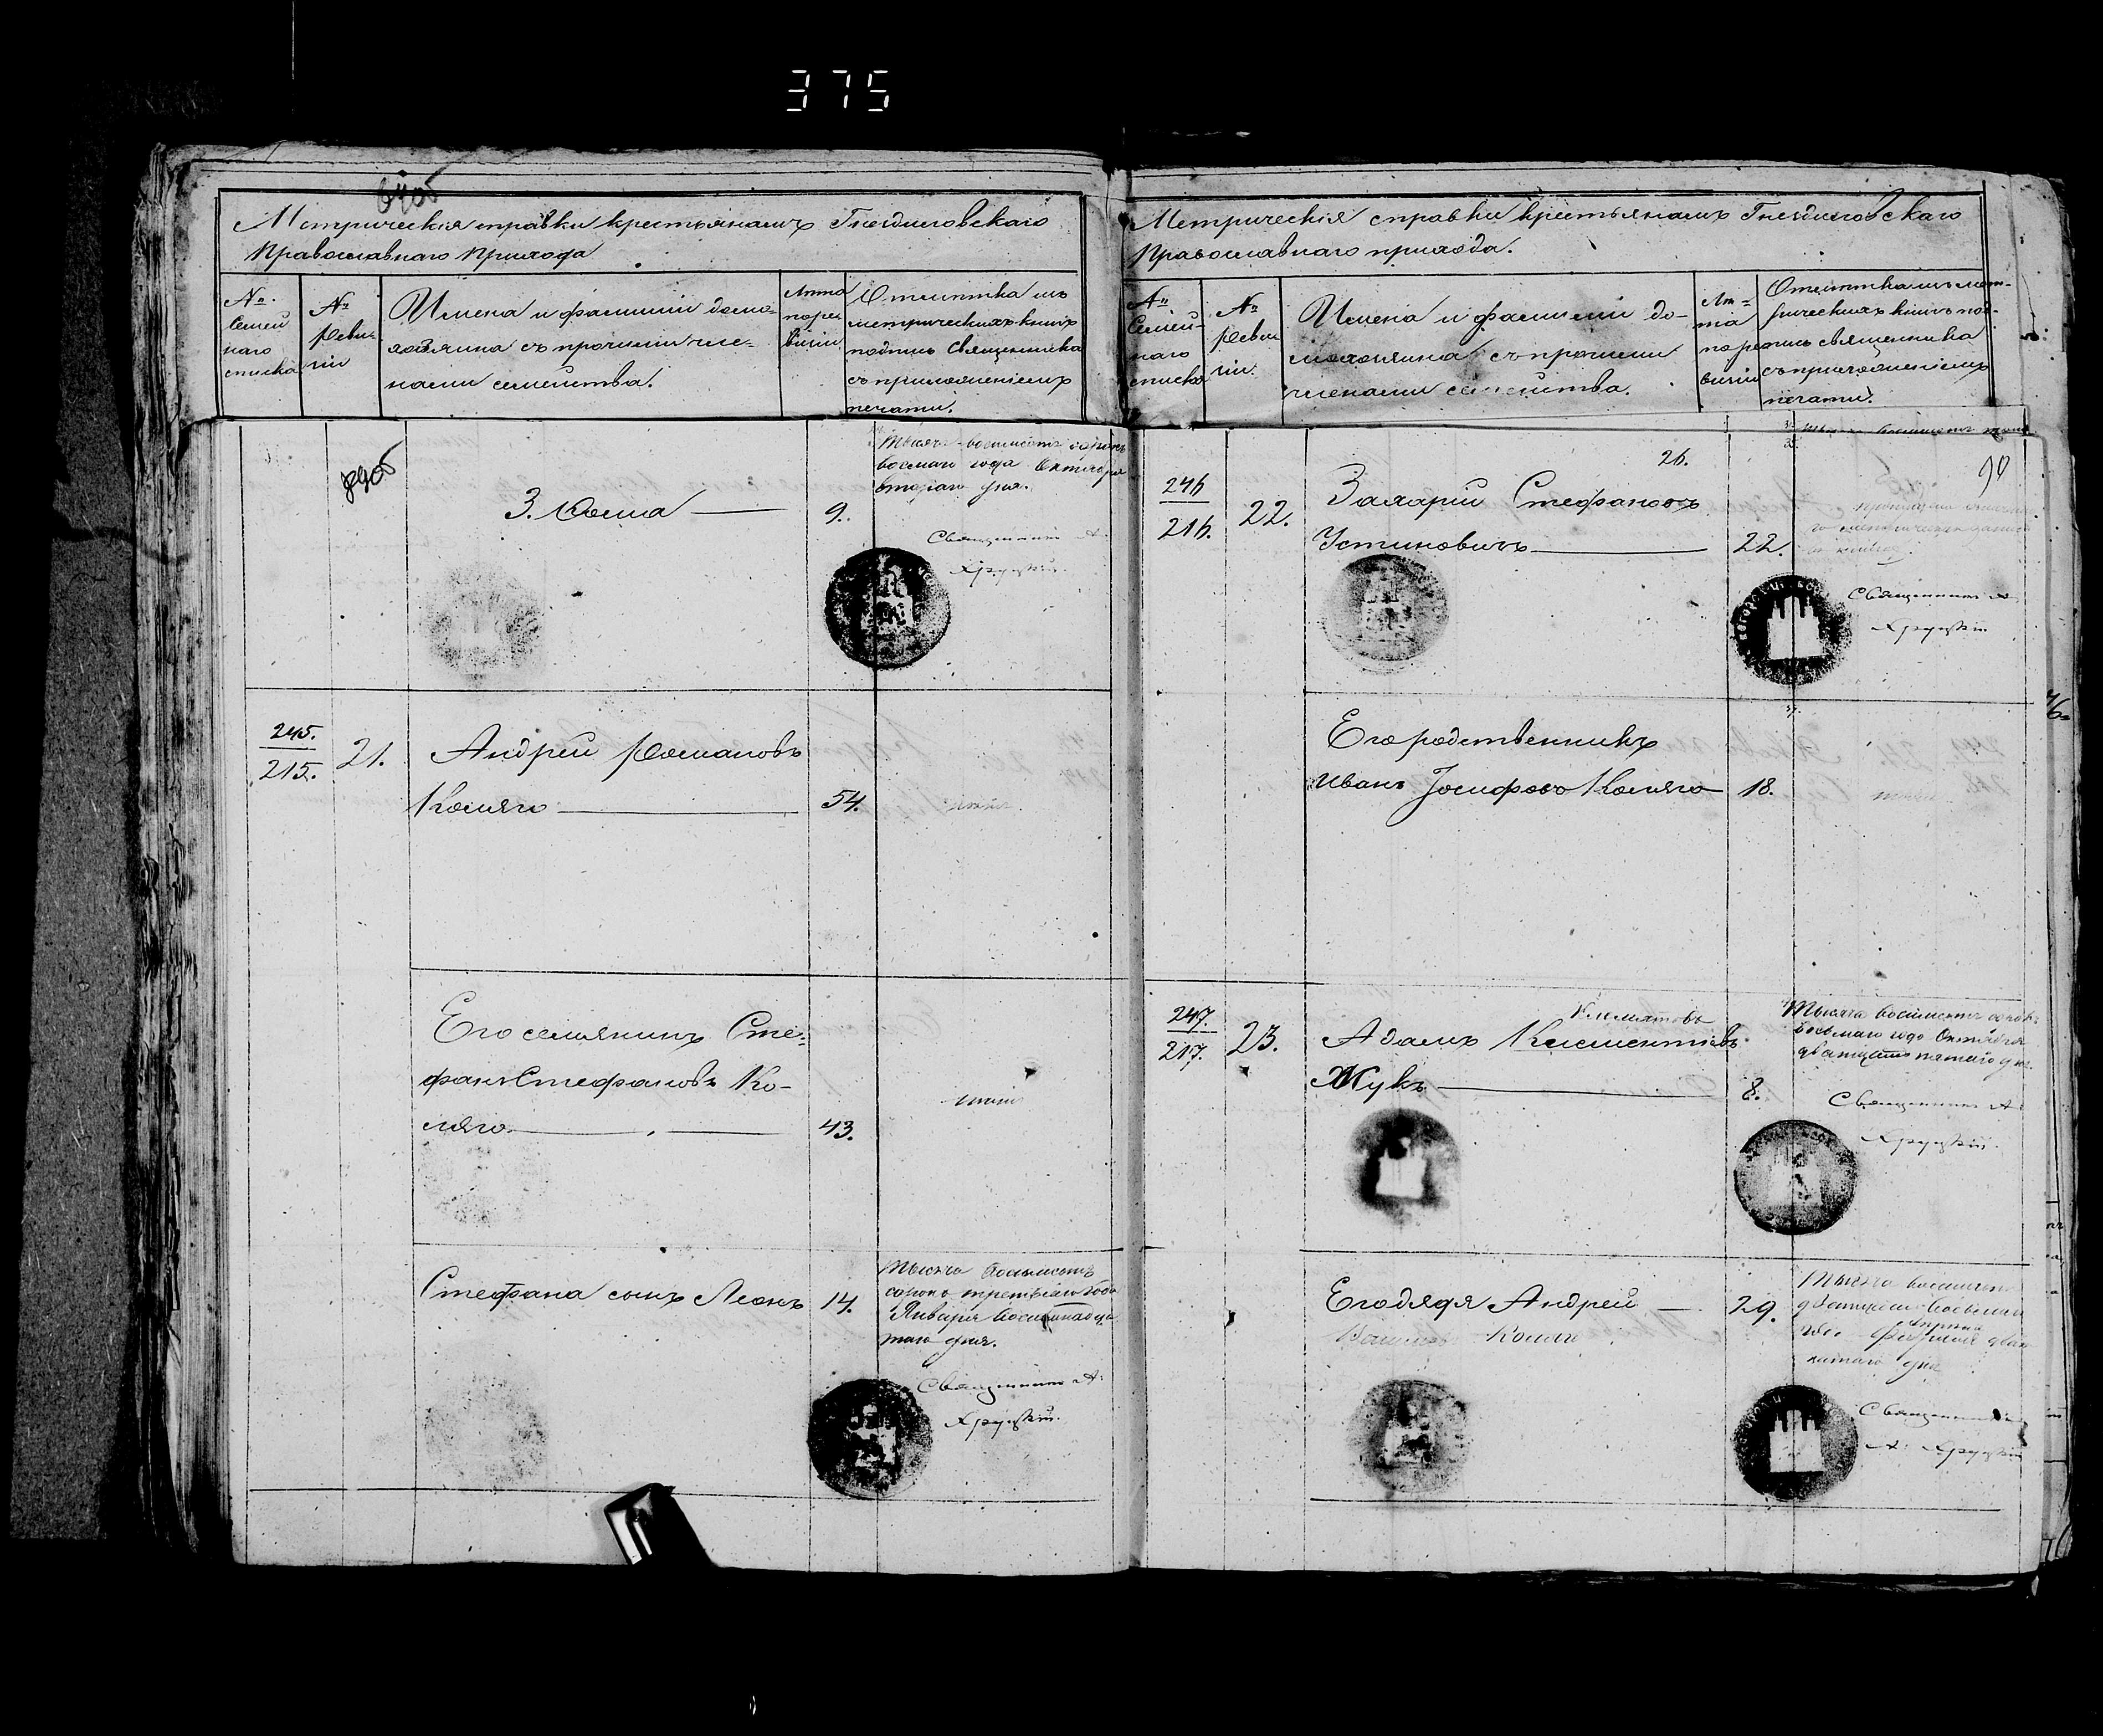 375
Метрическія справки крестьянамъ Гнездиловскаго
Православнаго Прихода
№ Семей наго списка
№ Реви- зіи
Имена и фамиліи домо-
хозяина съ прочими чле-
нами семейства.
Лѣта по ре- визіи
Отмѣтка изъ
метрическихъ книгъ
подпись Священника
съ приложеніемъ
печати.
3. Косма 9.
Тысяча восемьсотъ сорокъ
восьмаго года Октября
втораго дня.
Священникъ А.
Хруцкій.
245.
215.
21.
Андрей Романовъ
Комяго 54.
Его семянинъ Сте-
фанъ Стефановъ Ко-
мяго 43.
Стефана сынъ Леонъ 14.
Тысяча восемьсотъ
сорокъ третьяго года
Января восемнадца
таго дня.
Священникъ А.
Хруцкій.
Метрическія справки крестьянамъ Гнездиловскаго
Православнаго прихода.
№ Семей- наго списка
№ Реви зіи.
Имена и фамиліи до-
мохозяина съ прочими
членами семейства.
Лѣ- та по ре визіи
Отмѣтка изъ мет-
рическихъ книгъ под-
пись священника
съ приложеніемъ
печати.
26.
90
246
216.
22.
Захарій Стефановъ
Устиновичъ 22.
Священникъ А.
Хруцкій
Его родственникъ
Иванъ Іосифовъ Комяго 18.
247.
217.
23.
Климятовъ
Адамъ Климентіевъ
Жукъ 8.
Тысяча восемьсотъ сорокъ
восьмаго года Октября
двадцать пятаго дня.
Священникъ А.
Хруцкій.
Его дядя Андрей 29.
Тысяча восемьсотъ
Священникъ
А. Хруцкій